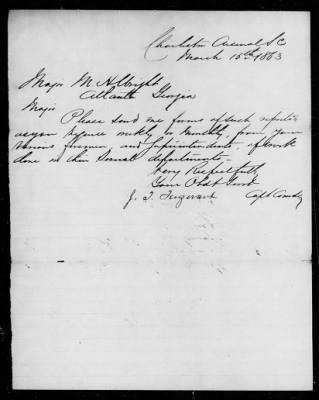 Charleston Arsenal S C
March 15th 1863
Major M H Wright
Atlanta Georgia
Major
Please send me forms of such reports
as you require weekly or monthly from your
various foremen, and Superintendents, of work
done in their several departments.
Very Respectfully
Your Obdt Servt
J. T. Trezevant Capt Comdg